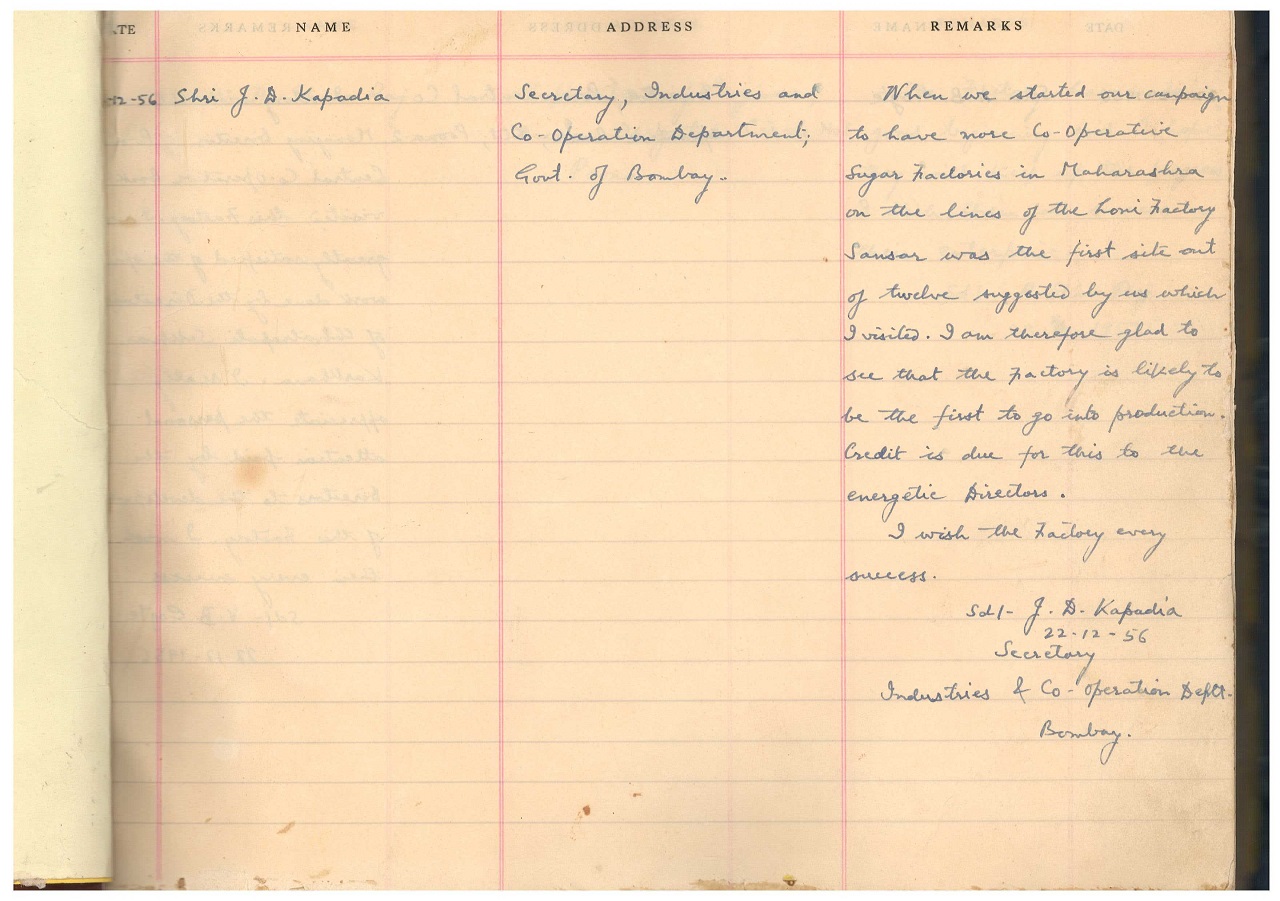 TE NAME ADDRESS REMARKS
-12-56 Shri J. D. Kapadia
Secretary, Industries and
Co-Operation Department;
Govt. of Bombay..
When we started our campaign
to have more Co-Operative
Sugar Factories in Maharashra
on the lines of the Loni Factory
Sansar was the first site out
of twelve suggested by us which
I visited. I am therefore glad to
see that the Factory is likely to
be the first to go into production.
Credit is due for this to the
energetic Directors.
I wish the Factory every
success.
Sd/- J. D. Kapadia
22-12-56
Secretary
Industries & Co-operation Deptt.
Bombay.